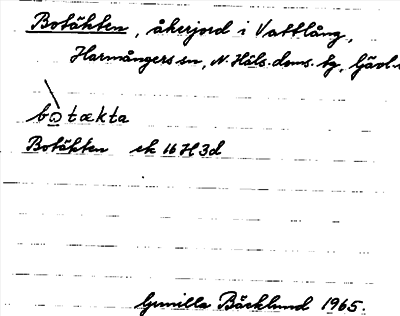 Botäkten, åkerjord i Vattlång,
Harmångers sn, N. Häls. doms. tg, Gävl.
botækta
Botäkten ek 16H3d
Gunilla Bäcklund 1965.